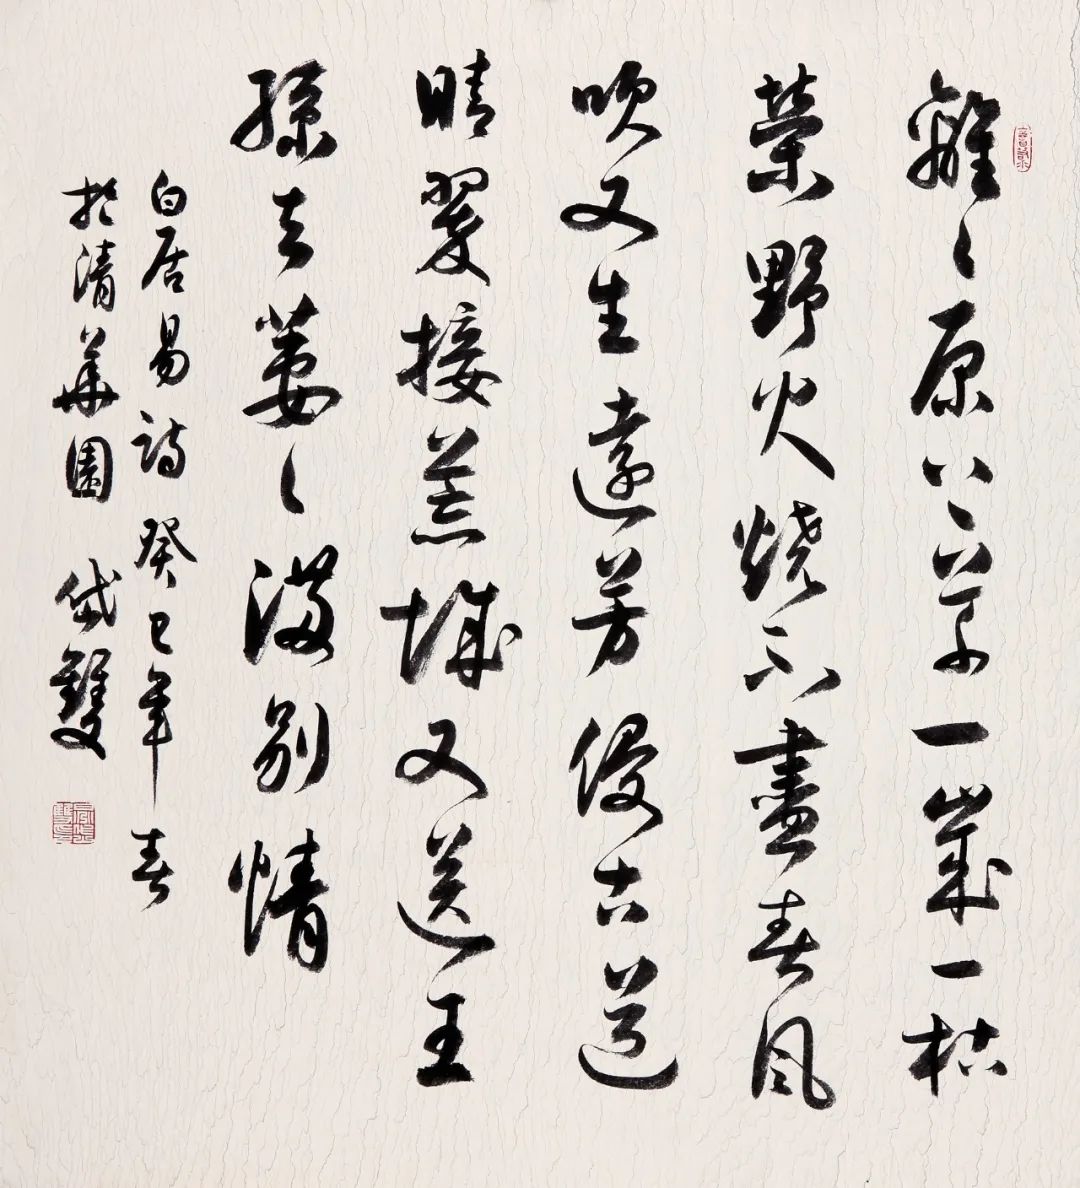 離々原上草一歲一枯
榮野火燒不盡春風
吹又生遠芳侵古道
晴翠接荒城又送王
孫去萋々滿別情
白居易詩 癸巳年 春
於清華園 岱雙